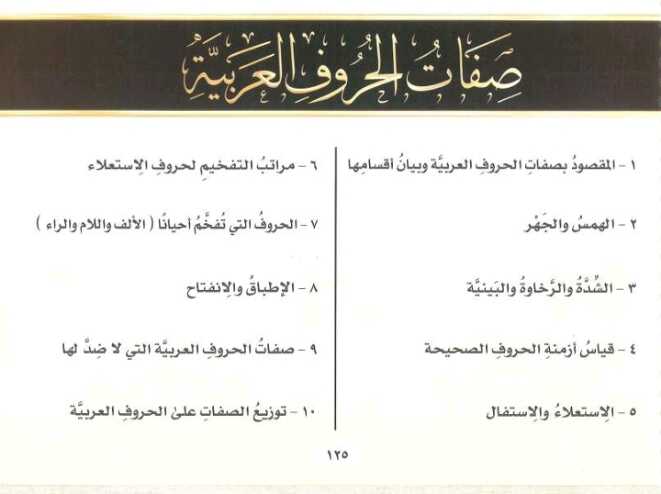 صِفَاتُ الحُرُوفِ العَرَبِيَّةِ
١ - المقصودُ بصفاتِ الحروفِ العربيَّة وبيانُ أقسامِها
٢ - الهمسُ والجَهْر
٣ - الشِّدَّةُ والرَّخاوةُ والبَينيَّة
٤ - قياسُ أزمنةِ الحروفِ الصحيحة
٥ - الِاستعلاءُ والِاستفال
٦ - مراتبُ التفخيمِ لحروفِ الِاستعلاء
٧ - الحروفُ التي تُفخَّمُ أحيانًا ( الألف واللام والراء )
٨ - الإطباقُ والِانفتاح
٩ - صفاتُ الحروفِ العربيَّةِ التي لا ضِدَّ لها
١٠ - توزيعُ الصفاتِ على الحروفِ العربيَّة
١٢٥